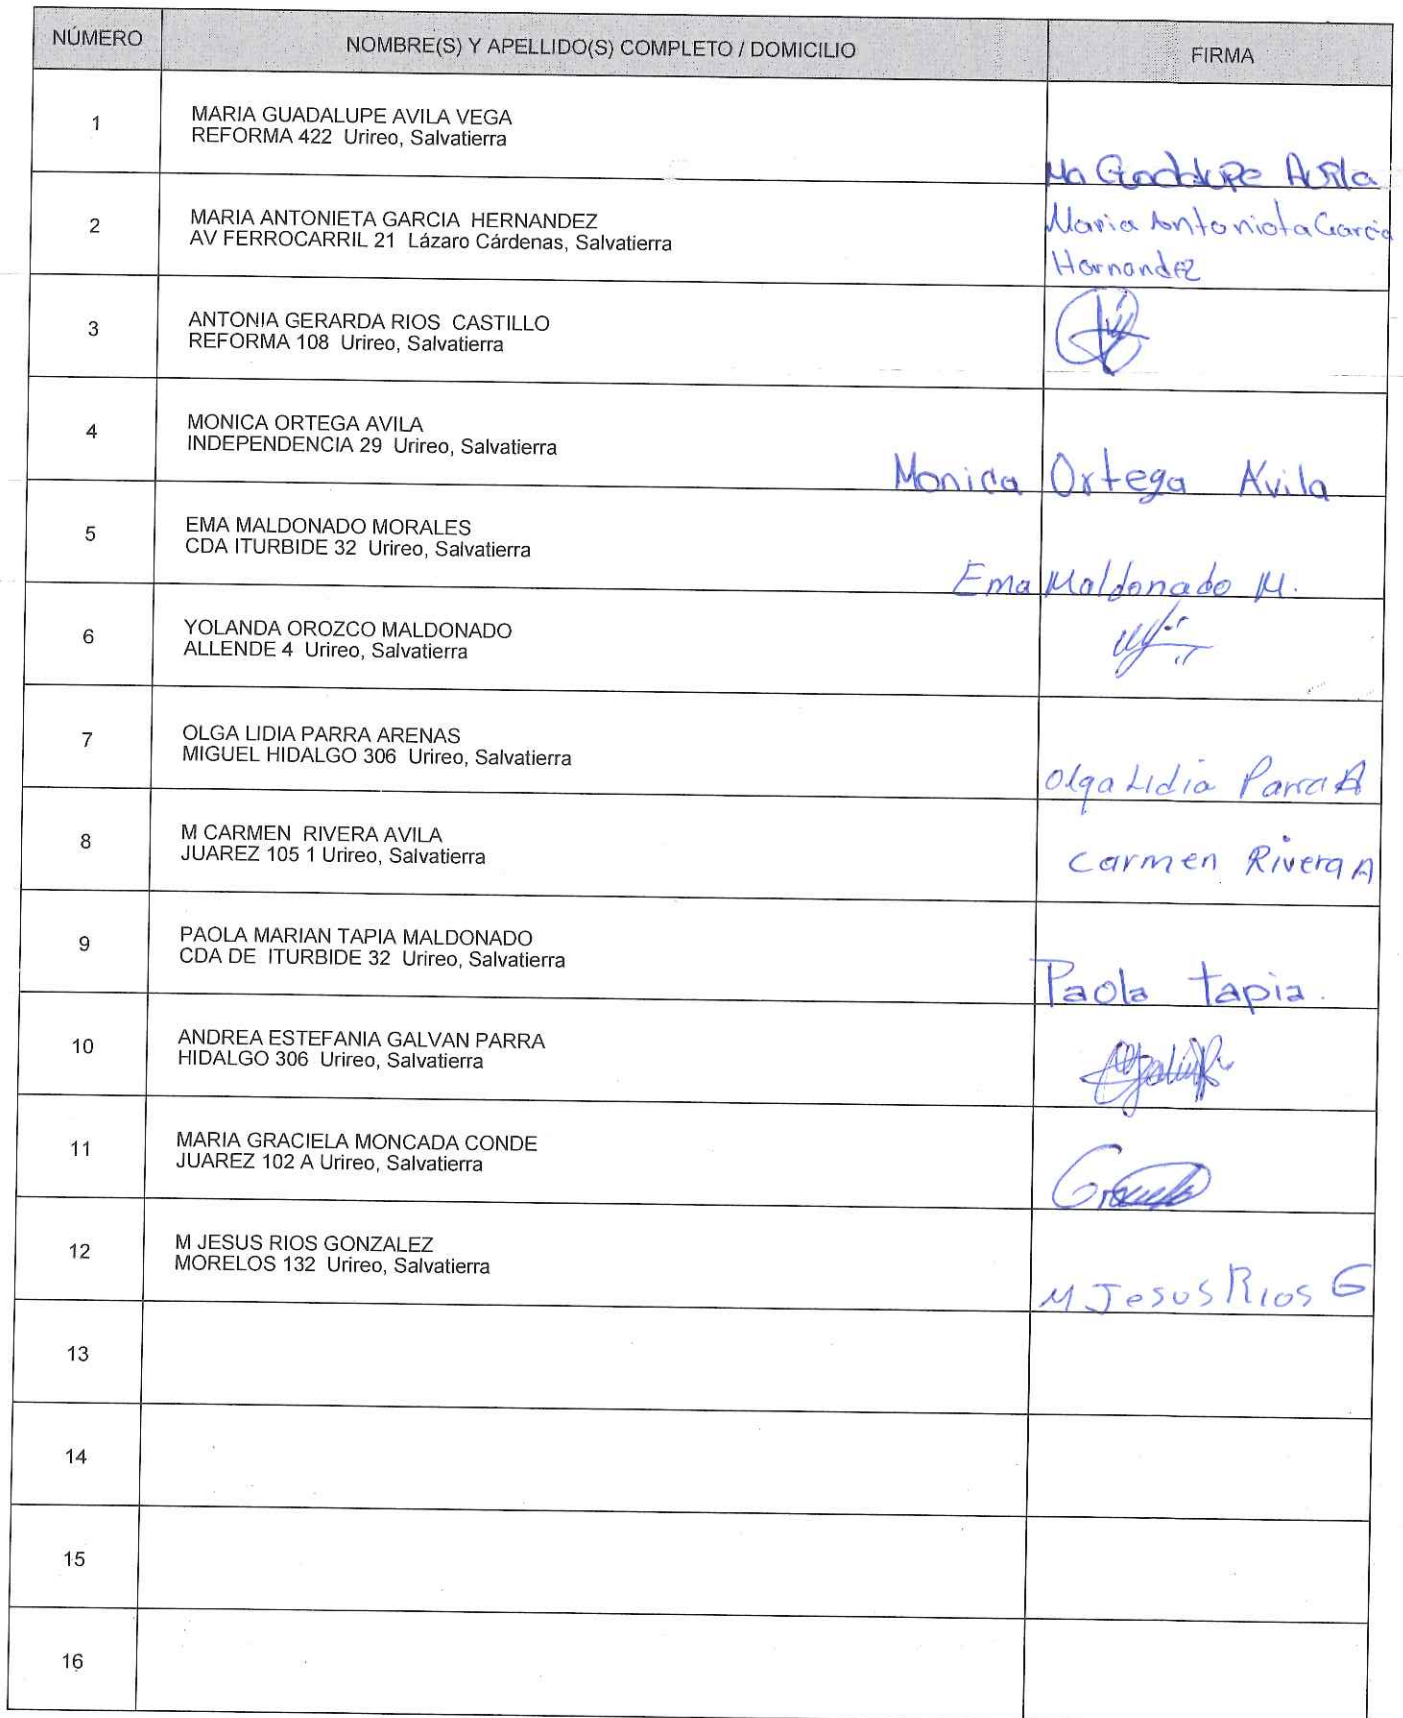 NÚMERO NOMBRE(S) Y APELLIDO(S) COMPLETO / DOMICILIO FIRMA
1 MARIA GUADALUPE AVILA VEGA
REFORMA 422 Urireo, Salvatierra
Ma Guadalupe Avila
2 MARIA ANTONIETA GARCIA HERNANDEZ
AV FERROCARRIL 21 Lázaro Cárdenas, Salvatierra
Maria Antonieta Garcia
Hernandez
3 ANTONIA GERARDA RIOS CASTILLO
REFORMA 108 Urireo, Salvatierra
4 MONICA ORTEGA AVILA
INDEPENDENCIA 29 Urireo, Salvatierra
Monica Ortega Avila
5 EMA MALDONADO MORALES
CDA ITURBIDE 32 Urireo, Salvatierra
Ema Maldonado M.
6 YOLANDA OROZCO MALDONADO
ALLENDE 4 Urireo, Salvatierra
7 OLGA LIDIA PARRA ARENAS
MIGUEL HIDALGO 306 Urireo, Salvatierra
Olga Lidia Parra A
8 M CARMEN RIVERA AVILA
JUAREZ 105 1 Urireo, Salvatierra
Carmen Rivera A
9 PAOLA MARIAN TAPIA MALDONADO
CDA DE ITURBIDE 32 Urireo, Salvatierra
Paola tapia.
10 ANDREA ESTEFANIA GALVAN PARRA
HIDALGO 306 Urireo, Salvatierra
11 MARIA GRACIELA MONCADA CONDE
JUAREZ 102 A Urireo, Salvatierra
12 M JESUS RIOS GONZALEZ
MORELOS 132 Urireo, Salvatierra
M Jesus Rios G
13
14
15
16